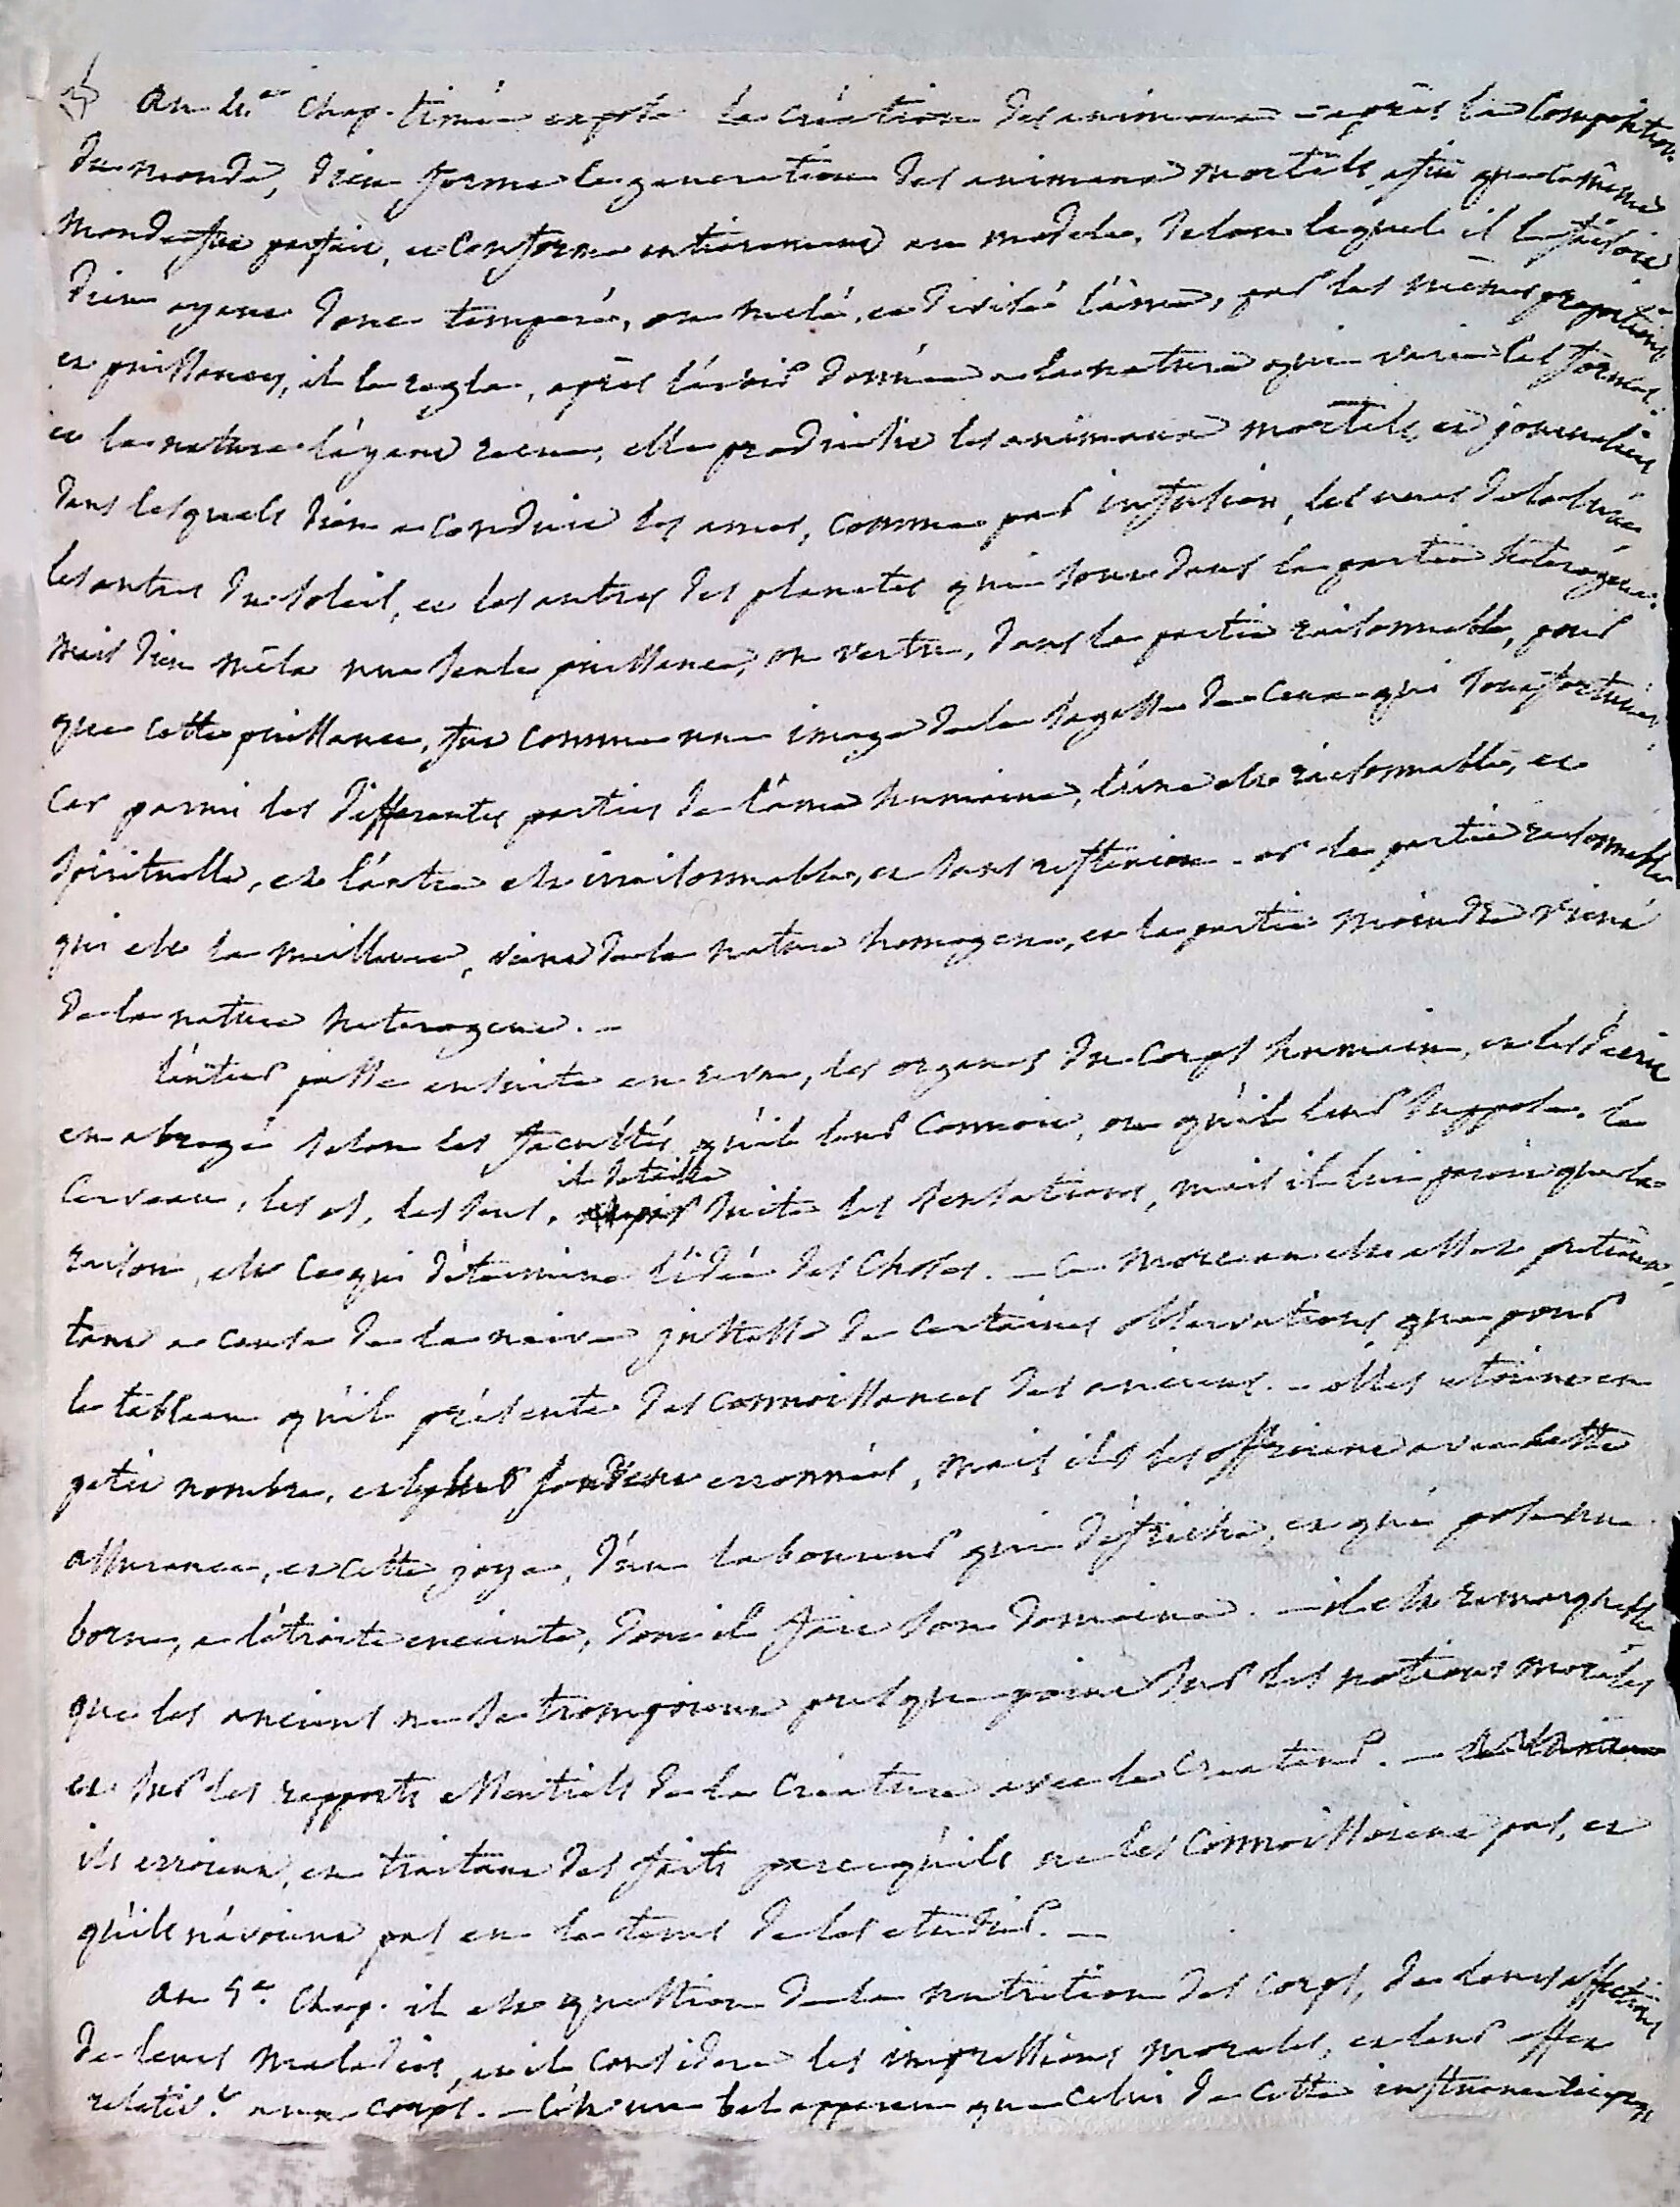 au 4.e Chap. timée expose la création des animaux - après la Composition
du monde, dieu forma la generation des animaux mortels, afin que le même
monde fut parfait, et Conforme entierement au modele, selon lequel il le faisoit
dieu ayant donc temperé, ou melé, et divisé l'âme, par les mêmes proportions
et puissances, il la regla, après l'avoir donnée a la nature qui varie les formes.
et la nature l'ayant recue, elle produisit les animaux mortels, et journaliers
dans lesquels dieu a conduit les ames, comme par infusion, les unes de la lune
les autres du soleil, et les autres des planetes qui sont dans la partie heterogene.
mais dieu mêla une seule puissance, ou vertu, dans la partie raisonnable, pour
que cette puissance, fut comme une image de la sagesse de ceux qui sont fortunés.
Car parmi les differentes parties de l'âme humaine, l'une est raisonnable, et
spirituelle, et l'autre est irraisonnable, et sans reflexion - or la partie raisonnable
qui est la meilleure, vient de la nature homogene, et la partie moindre vient
de la nature heterogene. -
l'auteur passe ensuite en revue, les organes du corps humain, et les décrit
en abregé selon les facultés qu'il leur connoit, ou qu'il leur suppose. le
Cerveau, les os, les sens. il detaille ensuite les sensations, mais il lui paroit que la
raison, est ce qui détermine l'idée des choses. - Ce morceau est assez
a cause de la naive justesse de certaines observations, que pour
le tableau qu'il présente des connoissances des anciens. - elles etoient en
petit nombre, et la plupart erronnées, mais ils les offroient avec cette
assurance, et cette joye, d'un laboureur qui défriche, et qui pose une
borne, a l'étroite enceinte, dont il fait son domaine. - il est remarquable
que les anciens ne se trompoient presque point sur les notions morales
et sur les rapports essentiels de la créature avec le Createur. -
ils erroient, en traitant des faits parce qu'ils ne les connoissoient pas, et
qu'ils n'avoient pas eu le tems de les etudier. -
au 5.e Chap. il est question de la nutrition des corps, de leurs affections
de leurs maladies, et il considere les impressions morales, et leur effet
relativ.t aux corps. - c'est un bel apperçu que celui de cette influence